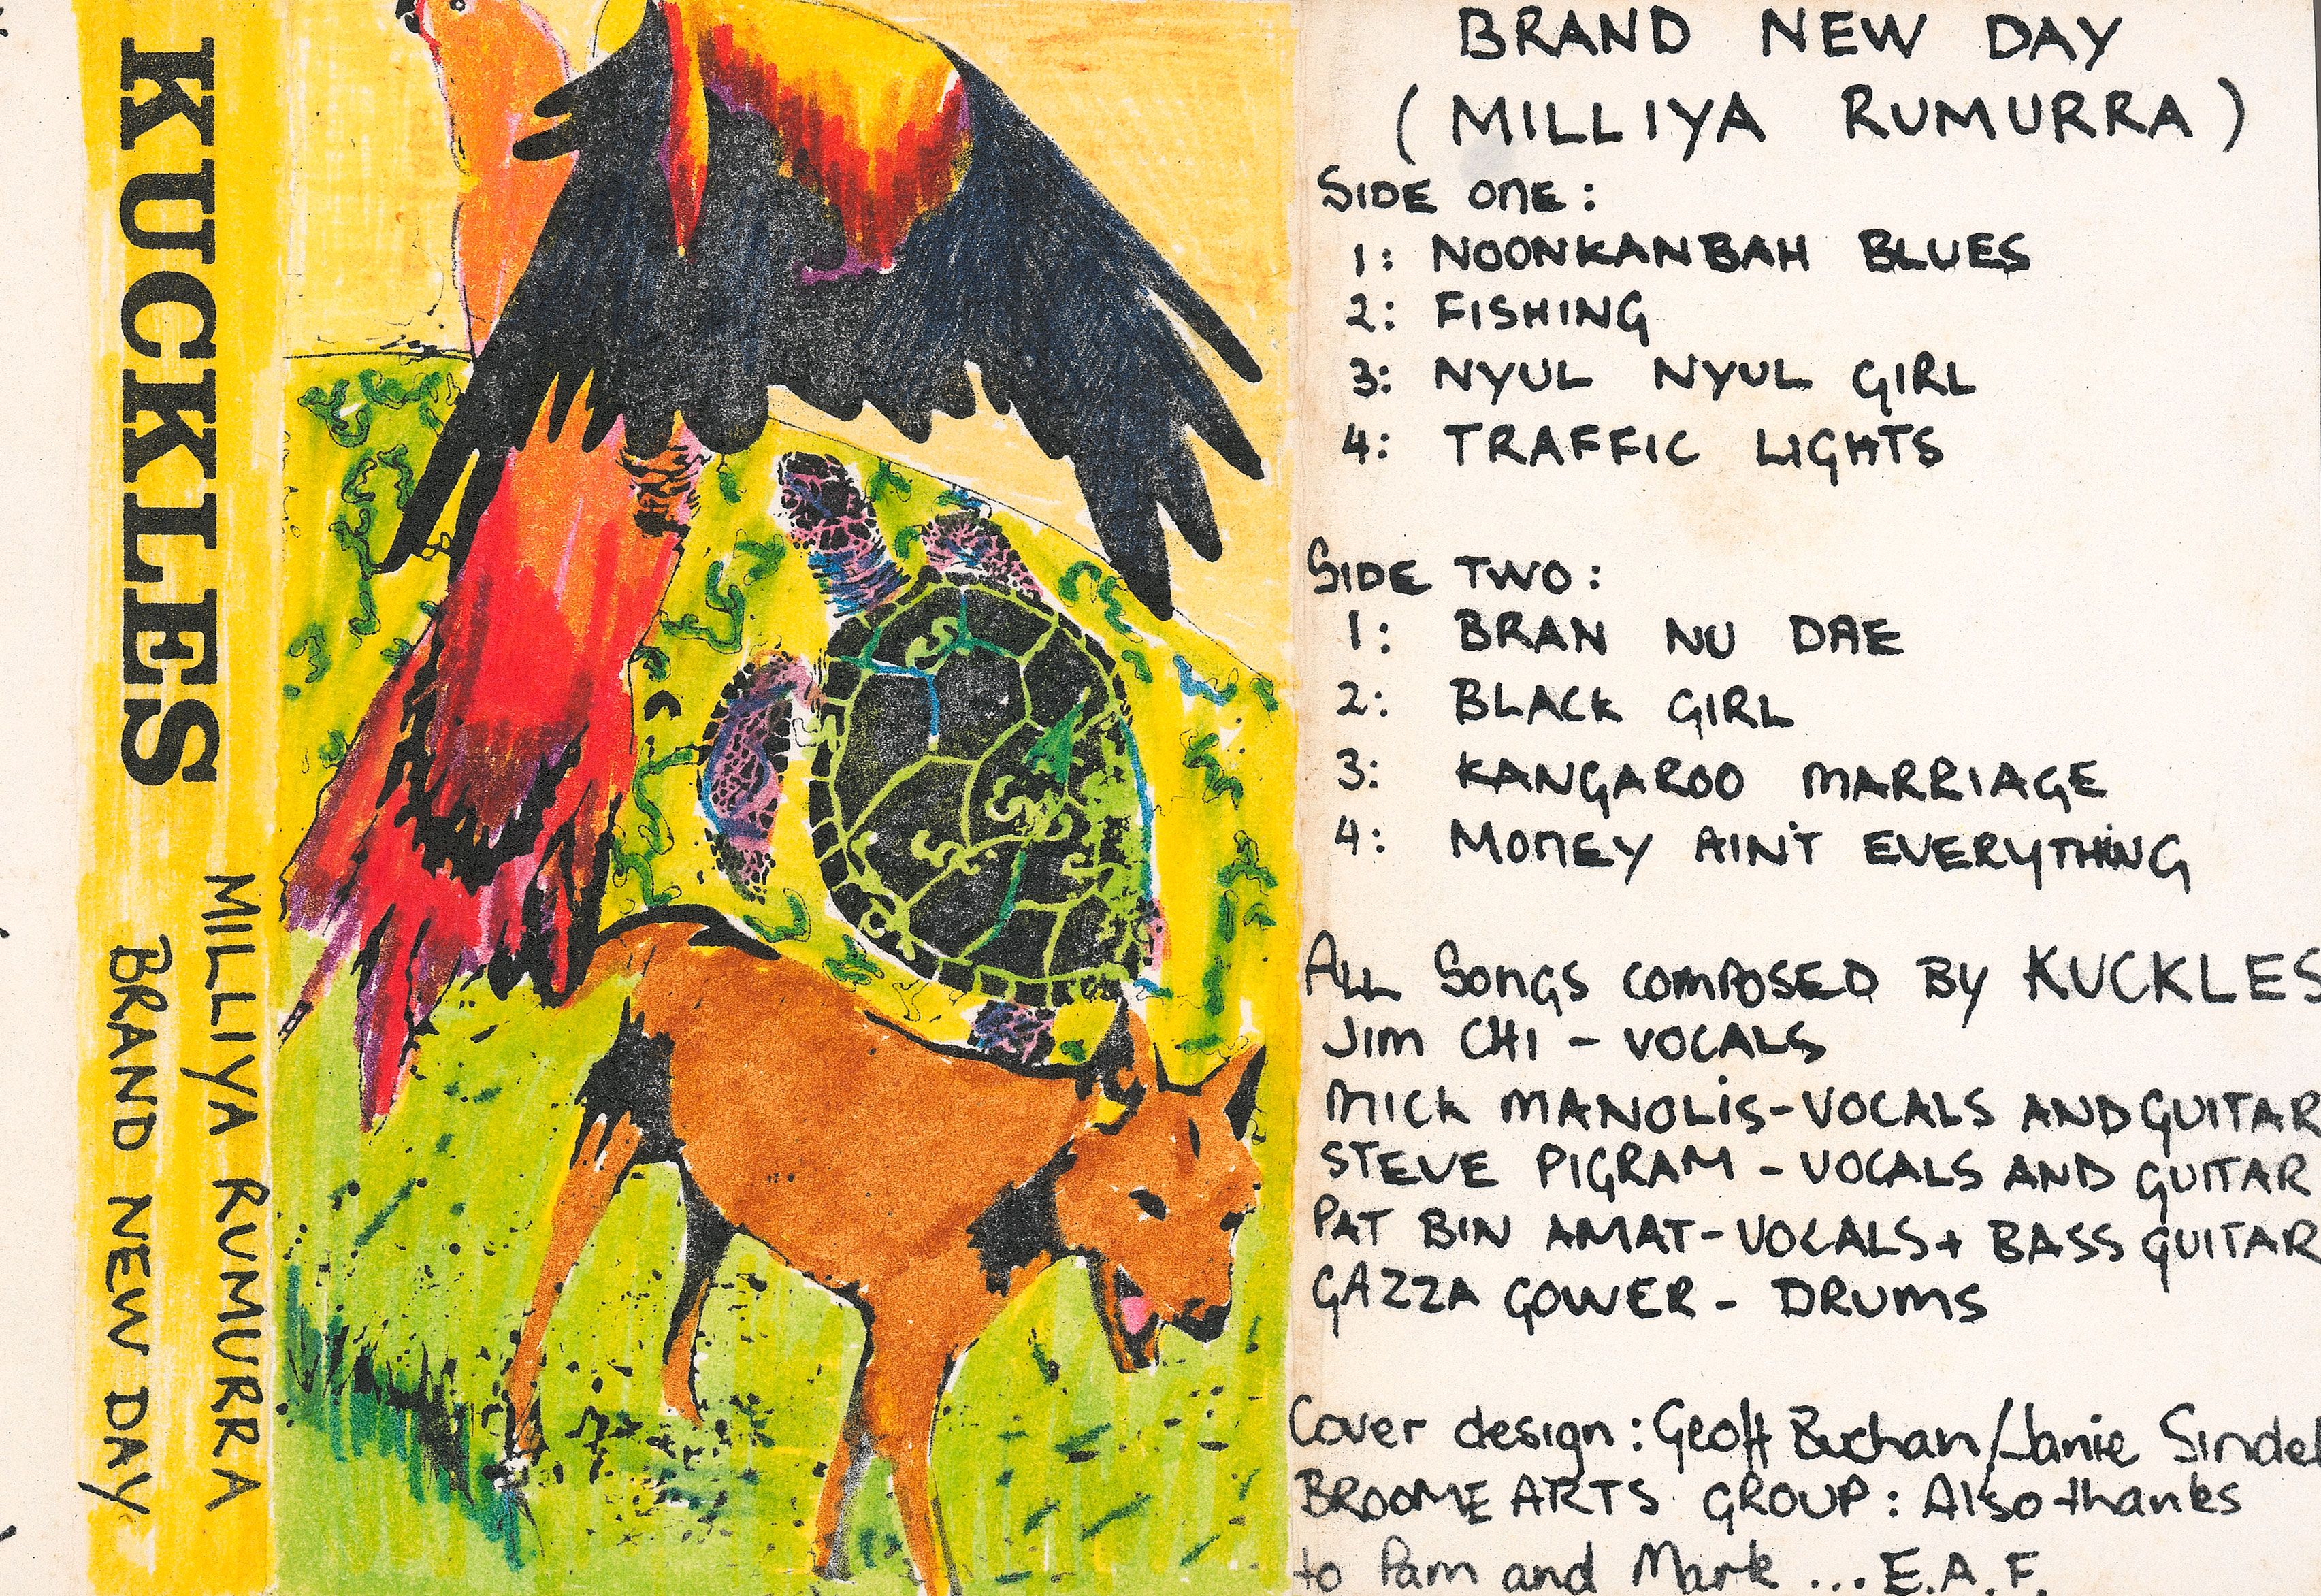 KUCKLES
MILLIYA RUMURRA
BRAND NEW DAY
BRAND NEW DAY
(MILLIYA RUMURRA)
SIDE ONE:
1: NOONKANBAH BLUES
2: FISHING
3: NYUL NYUL GIRL
4: TRAFFIC LIGHTS
SIDE TWO:
1: BRAN NU DAE
2: BLACK GIRL
3: KANGAROO MARRIAGE
4: MONEY AIN'T EVERYTHING
ALL SONGS COMPOSED BY KUCKLES
JIM CHI - VOCALS
MICK MANOLIS - VOCALS AND GUITAR
STEVE PIGRAM - VOCALS AND GUITAR
PAT BIN AMAT - VOCALS + BASS GUITAR
GAZZA GOWER - DRUMS
Cover design: Geoff Buchan/Janie Sindel
BROOME ARTS GROUP: Also thanks
to Pam and Mark ... E.A.F.